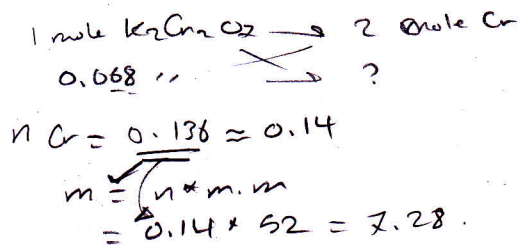 1 mole K2Cr2O7 → 2 mole Cr
0.068 〃 → ?
n Cr = 0.136 ≈ 0.14
m = n * m.m
= 0.14 * 52 = 7.28.